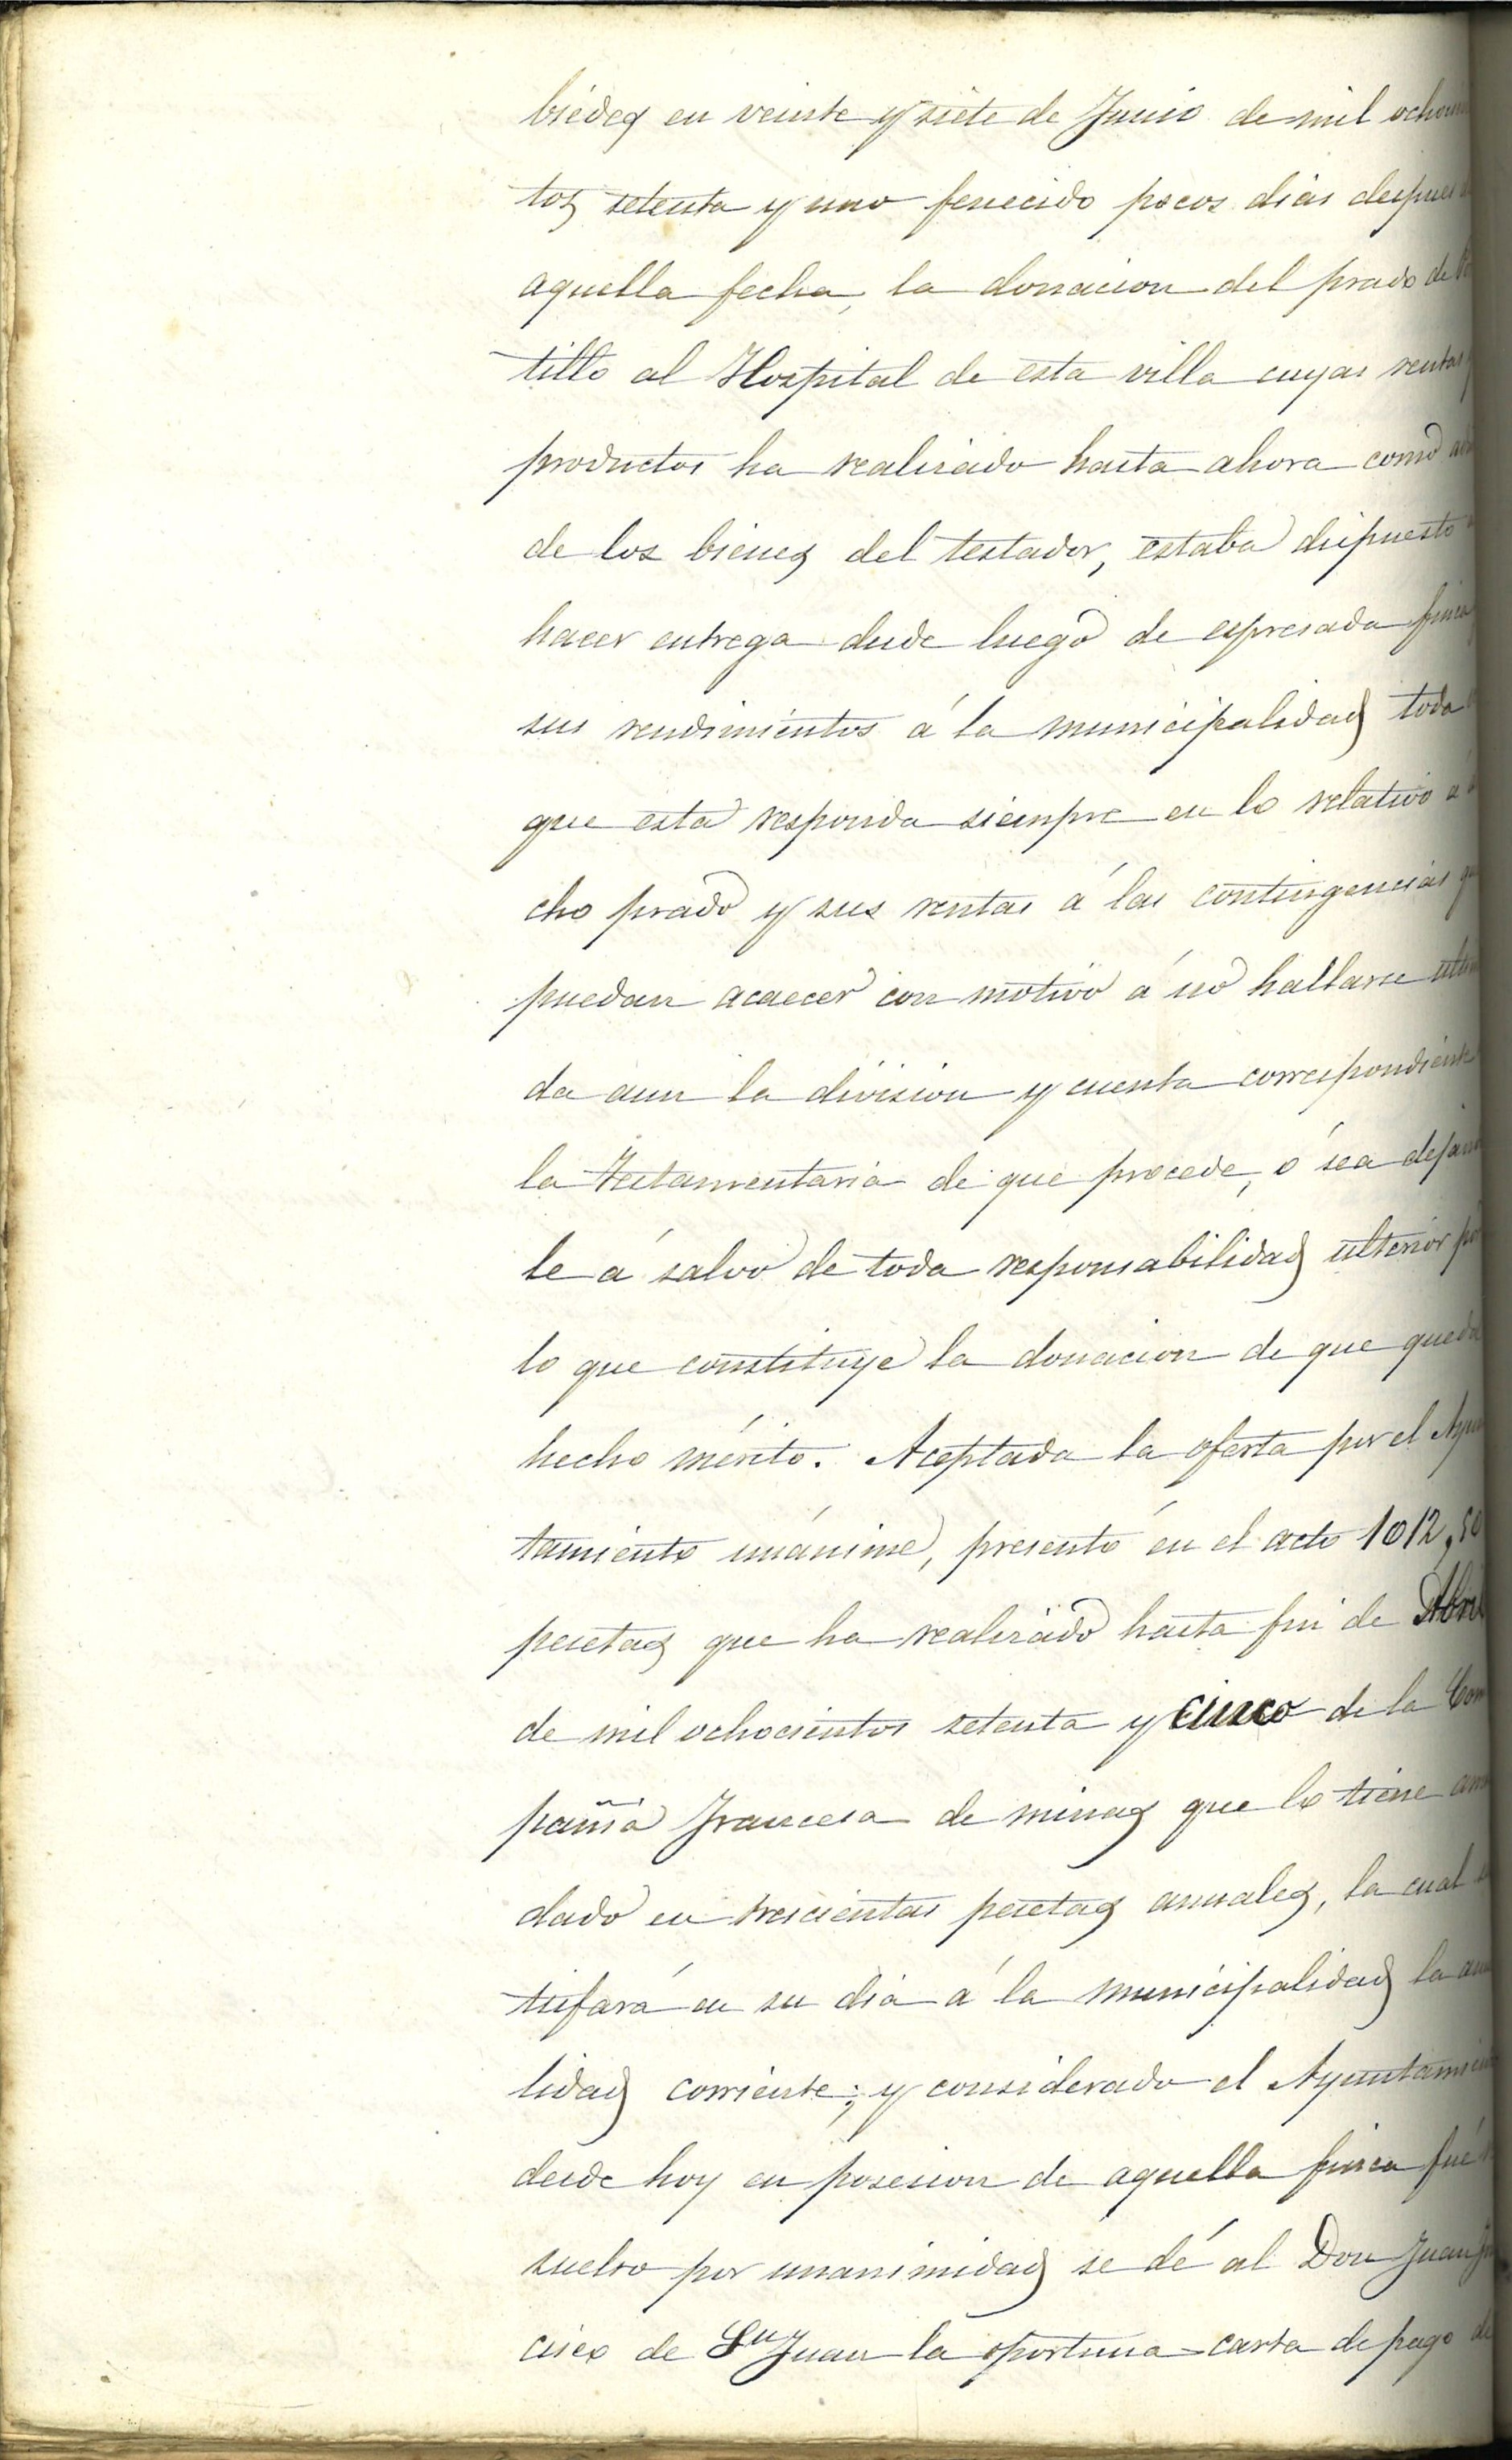 biédes en veinte y siete de Junio de mil ochocien
tos setenta y uno fenecido pocos dias despues
aquella fecha, la donacion del prado de
tillo al Hospital de esta villa cuyas rentas y
productos ha realizado hasta ahora como
de los bienes del testador, estaba dispuesto
hacer entrega desde luego de espresada finca
sus rendimientos á la municipalidad toda
que esta responda siempre en lo relativo a
cho prado y sus rentas á las contingencias que
puedan acaecer con motivo á no hallarse ultima
da aun la division y cuenta correspondiente
la Testamentaria de que procede, ó sea dejando
le á salvo de toda responsabilidad ulterior por
lo que constituye la donacion de que queda
hecho mérito. Aceptada la oferta por el Ayun
tamiento unánime, presentó en el acto 1012,50
pesetas que ha realizado hasta fin de Abril
de mil ochocientos setenta y cinco de la Com
pañia Francesa de minas que lo tiene
dado en trescientas pesetas anuales, la cual
tisfará en su dia á la municipalidad la anua
lidad corriente; y considerado el Ayuntamiento
desde hoy en posesion de aquella finca fué
suelto por unanimidad se dé al Don Juan
cisco de Sn Juan la oportuna carta de pago de